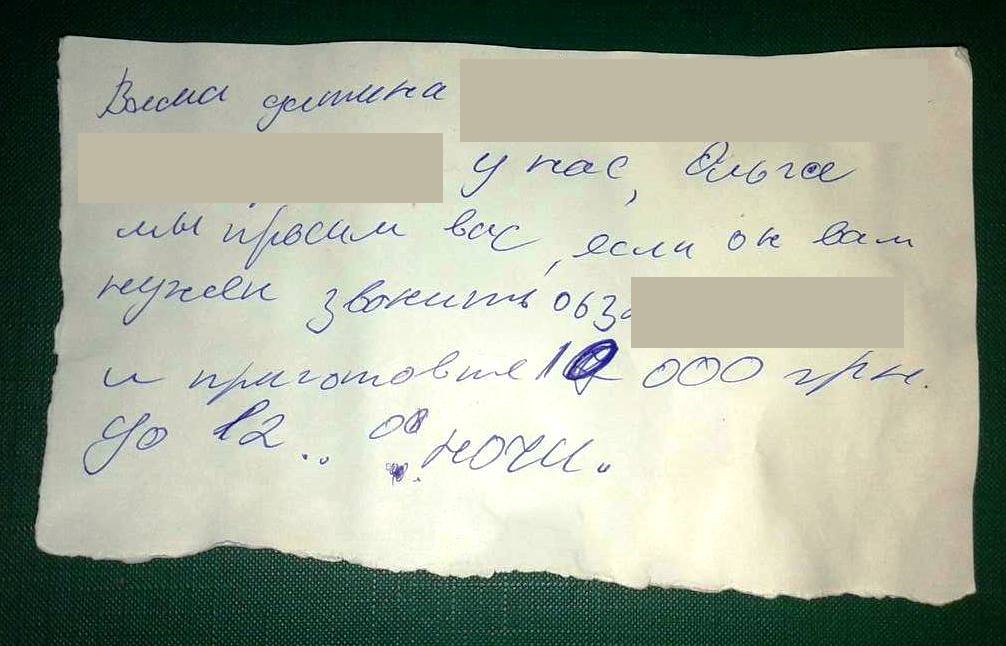 Ваша детина
у нас, Ольга
мы просим вас, если он вам
нужен звонить 063
и приготовте 10 000 грн.
до 12.. 00 ночи.